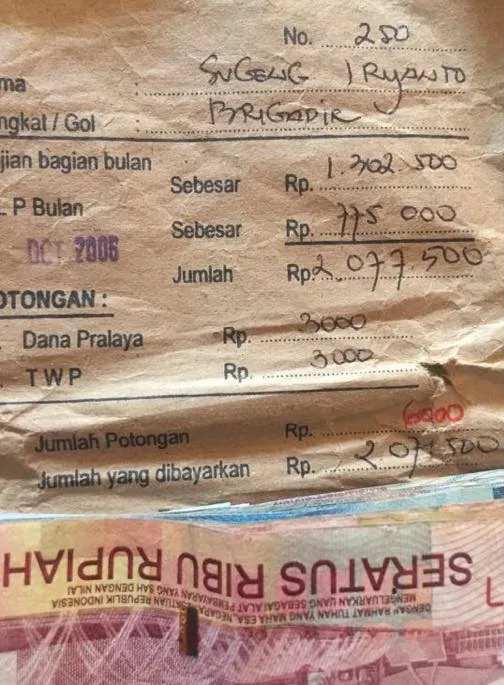 No. 250
ma SUGENG IRYANTO
ngkat / Gol : BRIGADIR
jian bagian bulan
Sebesar Rp. 1.302.500
P Bulan
Sebesar Rp. 775 000
OCT 2006
Jumlah Rp. 2.077.500
OTONGAN :
Dana Pralaya Rp. 3000
TWP Rp. 3000
Jumlah Potongan Rp. 6000
Jumlah yang dibayarkan Rp. 2 071 500
SERATUS RIBU RUPIAH
DENGAN RAHMAT TUHAN YANG MAHA ESA, NEGARA KESATUAN REPUBLIK INDONESIA
MENGELUARKAN UANG SEBAGAI ALAT PEMBAYARAN YANG SAH DENGAN NILAI